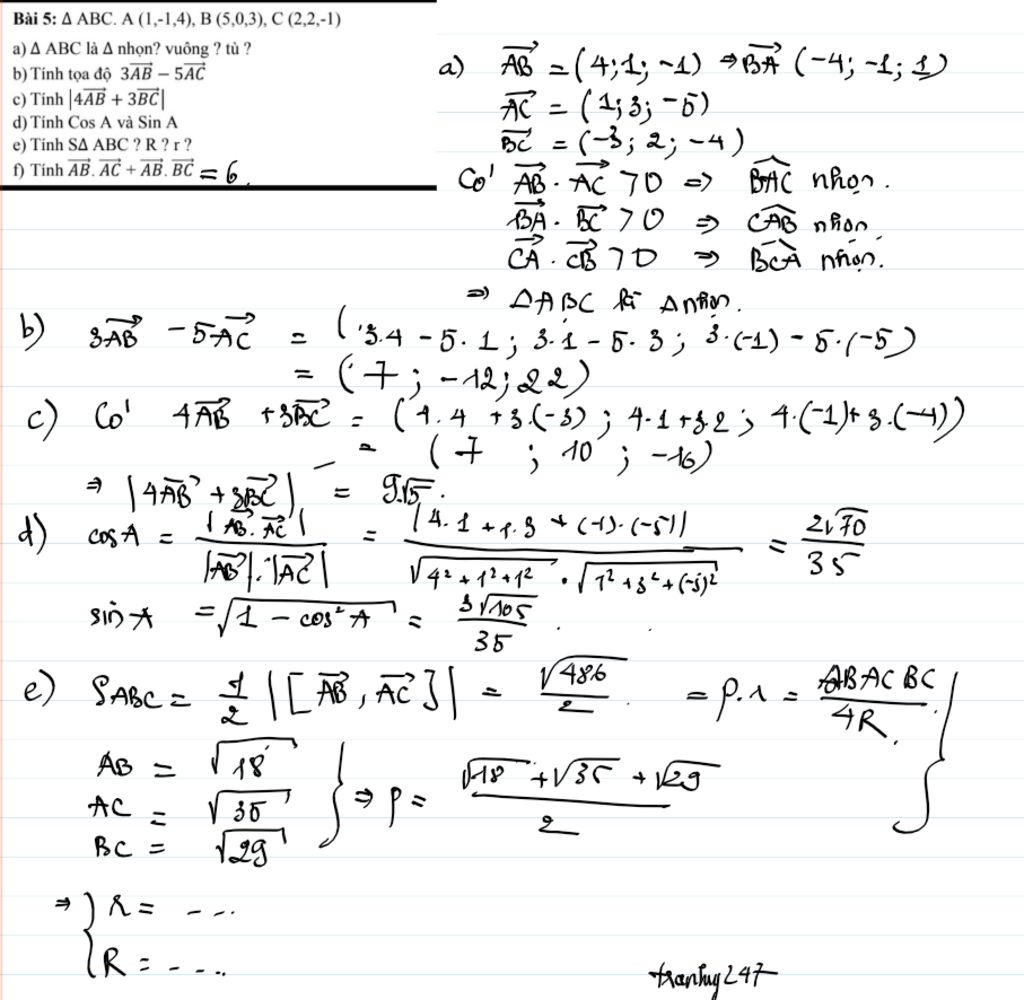 Bài 5: Δ ABC. A (1,-1,4), B (5,0,3), C (2,2,-1)
a) Δ ABC là Δ nhọn? vuông ? tù ?
b) Tính tọa độ 3AB − 5AC
c) Tính |4AB + 3BC|
d) Tính Cos A và Sin A
e) Tính SΔ ABC ? R ? r ?
f) Tính AB. AC + AB. BC = 6.
a) AB = (4;1;-1) ⇒ BA (-4;-1;1)
AC = (1;3;-5)
BC = (-3; 2; -4)
Có AB . AC > 0 ⇒ BAC nhọn.
BA . BC > 0 ⇒ CAB nhọn.
CA . CB > 0 ⇒ BCA nhọn.
⇒ ΔABC là Δ nhọn.
b) 3AB - 5AC = (3.4 - 5.1; 3.1 - 5.3; 3.(-1) - 5.(-5)
= (7; -12; 22)
c) Có 4AB + 3BC = (4.4 + 3.(-3); 4.1 + 3.2; 4.(-1) + 3.(-4))
= (7; 10; -16)
⇒ |4AB + 3BC| = 9√5.
d) cosA = |AB.AC| / |AB|.|AC| = |4.1 + 1.3 + (-1).(-5)| / √4²+1²+1² . √1²+3²+(-5)² = 2√70 / 35
sin A = √1 - cos² A = 3√105 / 35.
e) SABC = 1/2 |[AB, AC]| = √486 / 2 = p.r = AB AC BC / 4R.
AB = √18
AC = √35
BC = √29
⇒ p = √18 + √35 + √29 / 2
⇒ { r = ----
R = ----
tranhuy247